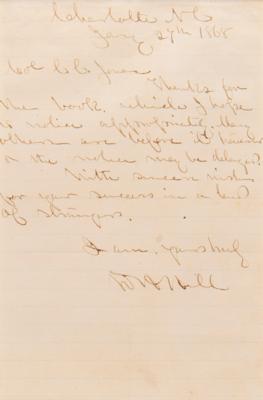 Charlotte N C
Jany 27th 1868
Col C. C. Jones
Thanks for
the book, which I hope
to notice appropriately. Many
others are before it
or the notice may be delayed.
With sincere wishes
for your success in a land
of strangers.
I am, yours truly
D H Hill